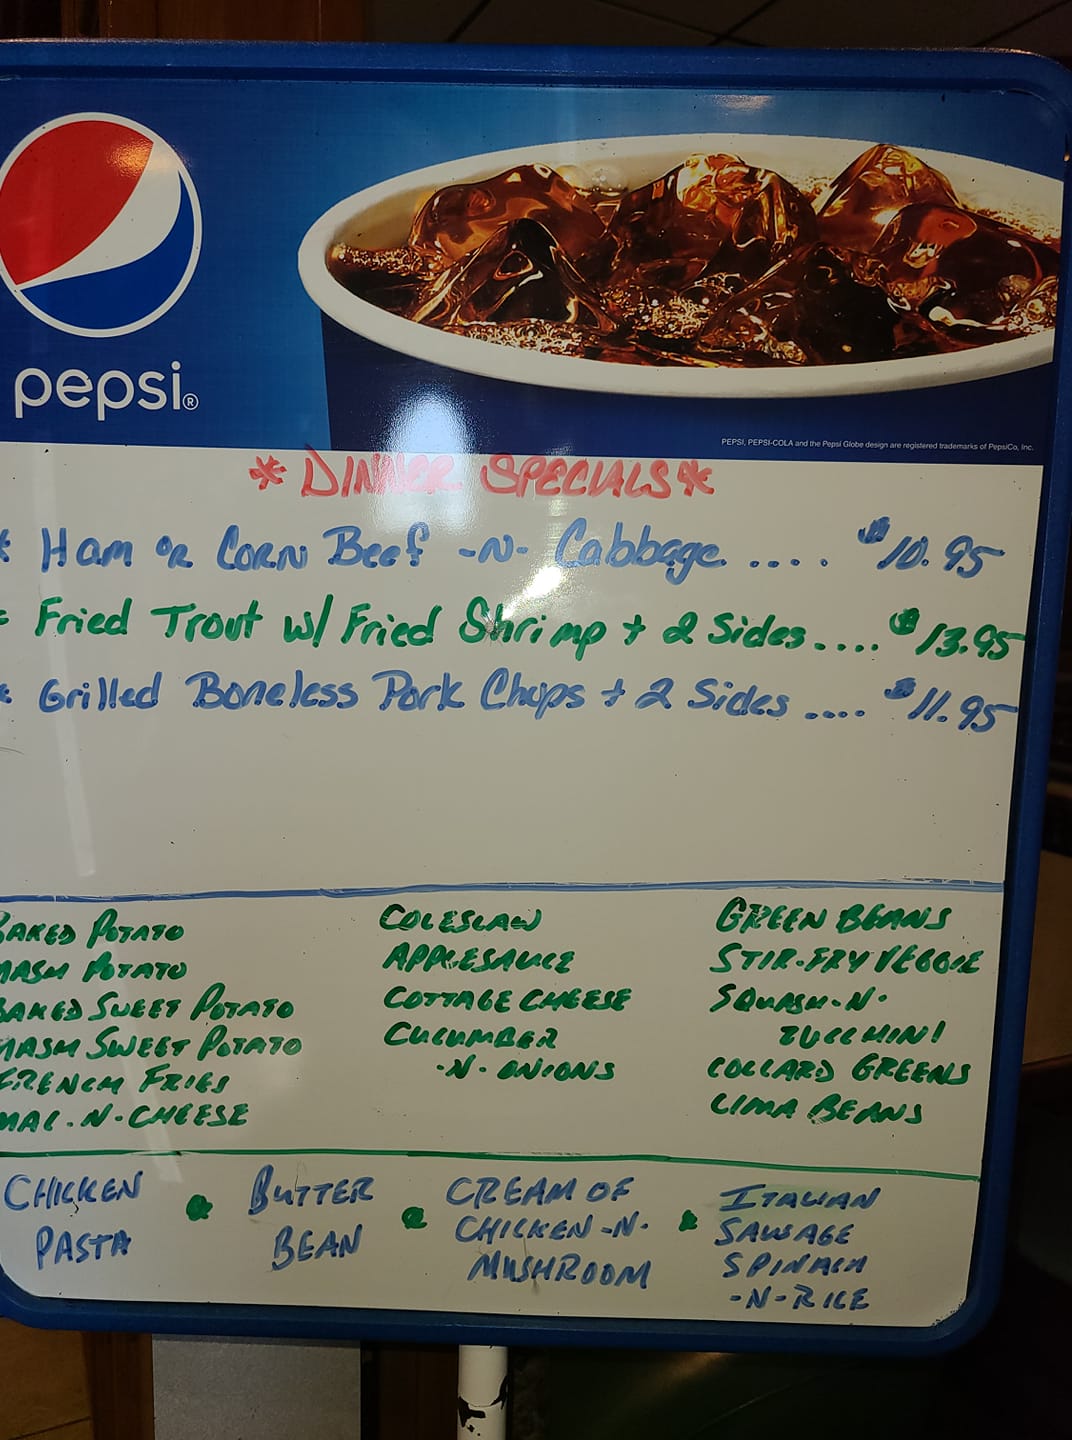 pepsi®
PEPSI, PEPSI-COLA and the Pepsi Globe design are registered trademarks of PepsiCo, Inc.
* DINNER SPECIALS *
* Ham or Corn Beef -N- Cabbage .... $10.95
* Fried Trout w/ Fried Shrimp + 2 Sides .... $13.95
* Grilled Boneless Pork Chops + 2 Sides .... $11.95
BAKED POTATO
MASH POTATO
BAKED SWEET POTATO
MASH SWEET POTATO
FRENCH FRIES
MAC-N-CHEESE
COLESLAW
APPLESAUCE
COTTAGE CHEESE
CUCUMBER
-N- ONIONS
GREEN BEANS
STIR-FRY VEGGIE
SQUASH-N-
ZUCCHINI
COLLARD GREENS
LIMA BEANS
CHICKEN
PASTA
BUTTER
BEAN
CREAM OF
CHICKEN-N-
MUSHROOM
ITALIAN
SAUSAGE
SPINACH
-N-RICE